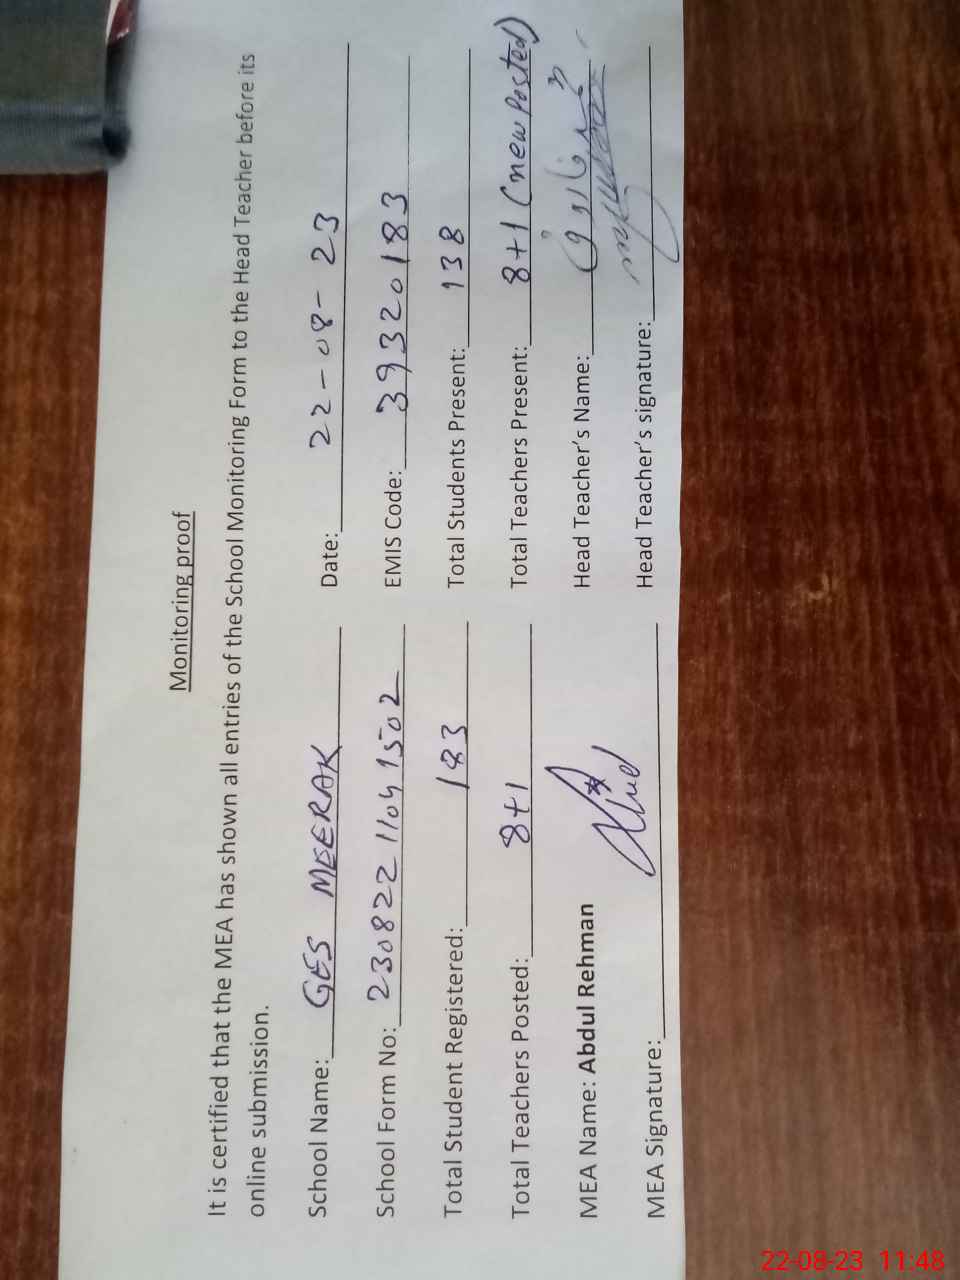 Monitoring proof
It is certified that the MEA has shown all entries of the School Monitoring Form to the Head Teacher before its
online submission.
School Name: GES MEERAK Date: 22-08-23
School Form No: 23082211041502 EMIS Code: 39320183
Total Student Registered: 183 Total Students Present: 138
Total Teachers Posted: 8+1 Total Teachers Present: 8+1 (new Posted)
MEA Name: Abdul Rehman Head Teacher's Name:
MEA Signature: Head Teacher's signature:
22-08-23 11:48